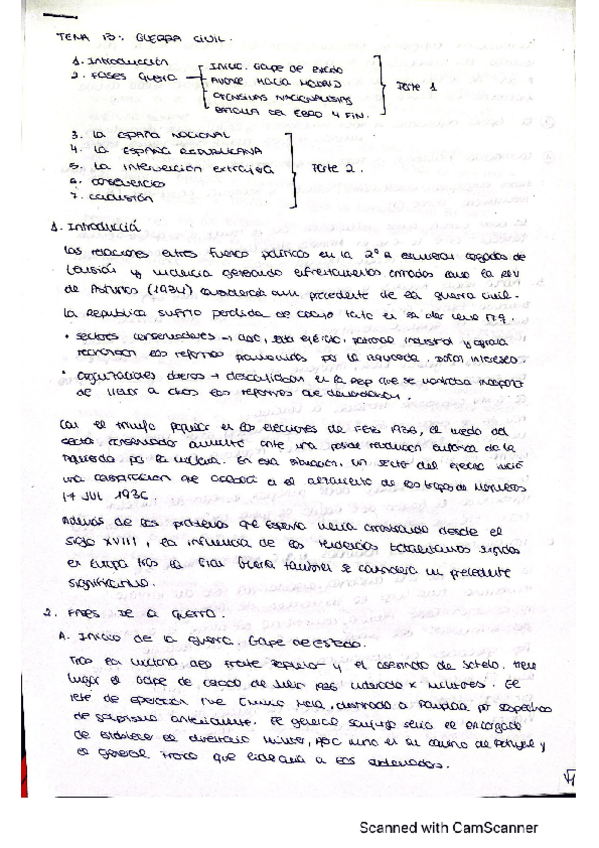 TEMA 13: GUERRA CIVIL.
1. Introducción
2. Fases guerra
INICIO. GOLPE DE ESTADO
AVANCE HACIA MADRID
OFENSIVAS NACIONALISTAS
BATALLA DEL EBRO Y FIN.
Parte 1
3. LA ESPAÑA NACIONAL
4. LA ESPAÑA REPUBLICANA
5. La intervención extranjera
6. consecuencias
7. conclusión
Parte 2.
1. Introducció
Las relaciones entre fuerzas políticas en la 2ª R estuvieron cargadas de
tensión y violencia generando enfrentamientos armados como la rev
de Asturias (1934) considerada un precedente de la guerra civil.
La República sufrió perdida de apoyo tanto
• sectores conservadores → ejército, patronal industrial y agraria
rechazaban las reformas promovidas por la izquierda. intereses.
• organizaciones obreras → en la Rep que se mostraba incapaz
de llevar a cabo las reformas que demandaban.
Con el triunfo popular en las elecciones de Feb 1936, el miedo del
sector conservador aumentó ante una posible revolución de la
izquierda por la violencia. En esta situación, un sector del ejército inició
una conspiración que acabará en el alzamiento de las tropas de Marruecos
17 JUL 1936.
Además de los problemas que España venía arrastrando desde el
siglo XVIII, la influencia de las tendencias totalitarias surgidas
en Europa tras la Gran Guerra también se considera un precedente
significativo.
2. FASES DE LA GUERRA
A. Inicio de la guerra. Golpe de estado.
Tras la victoria del Frente Popular y el asesinato de Sotelo, tiene
lugar el Golpe de estado de Julio 1936 liderado x militares. El
jefe de operación fue Emilio Mola, destinado a Pamplona por sospechas
de golpismo anteriormente. El general Sanjurjo sería el encargado
de establecer el directorio militar, pero murió en su camino de Portugal y
el general Franco que lideraría a los sublevados.
Scanned with CamScanner